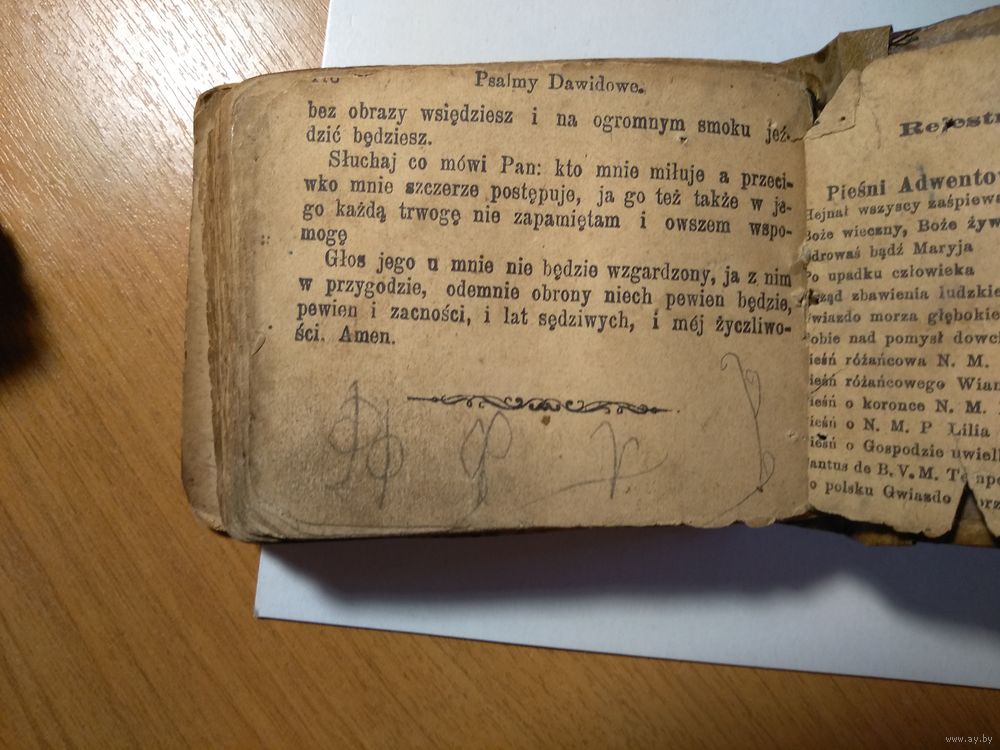 Psalmy Dawidowe.
bez obrazy wsiędziesz i na ogromnym smoku jeź-
dzić będziesz.
Słuchaj co mówi Pan: kto mnie miłuje a przeci-
wko mnie szczerze postępuje, ja go też także w je-
go każdą trwogę nie zapamiętam i owszem wspo-
mogę
Głos jego u mnie nie będzie wzgardzony, ja z nim
w przygodzie, odemnie obrony niech pewien będzie,
pewien i zacności, i lat sędziwych, i méj życzliwo-
ści. Amen.
Rejestr
Pieśni Adwento
wszyscy zaśpiewa
Boże wieczny, Boże żyw
bądź Maryja
Po upadku człowieka
zbawienia ludzkie
morza głębokie
nad pomysł dowci
różańcowa N. M.
różańcowego Wian
o koronce N. M.
o N. M. P Lilia
o Gospodzie uwiel
de B. V. M.
polsku Gwiazdo
www.ay.by